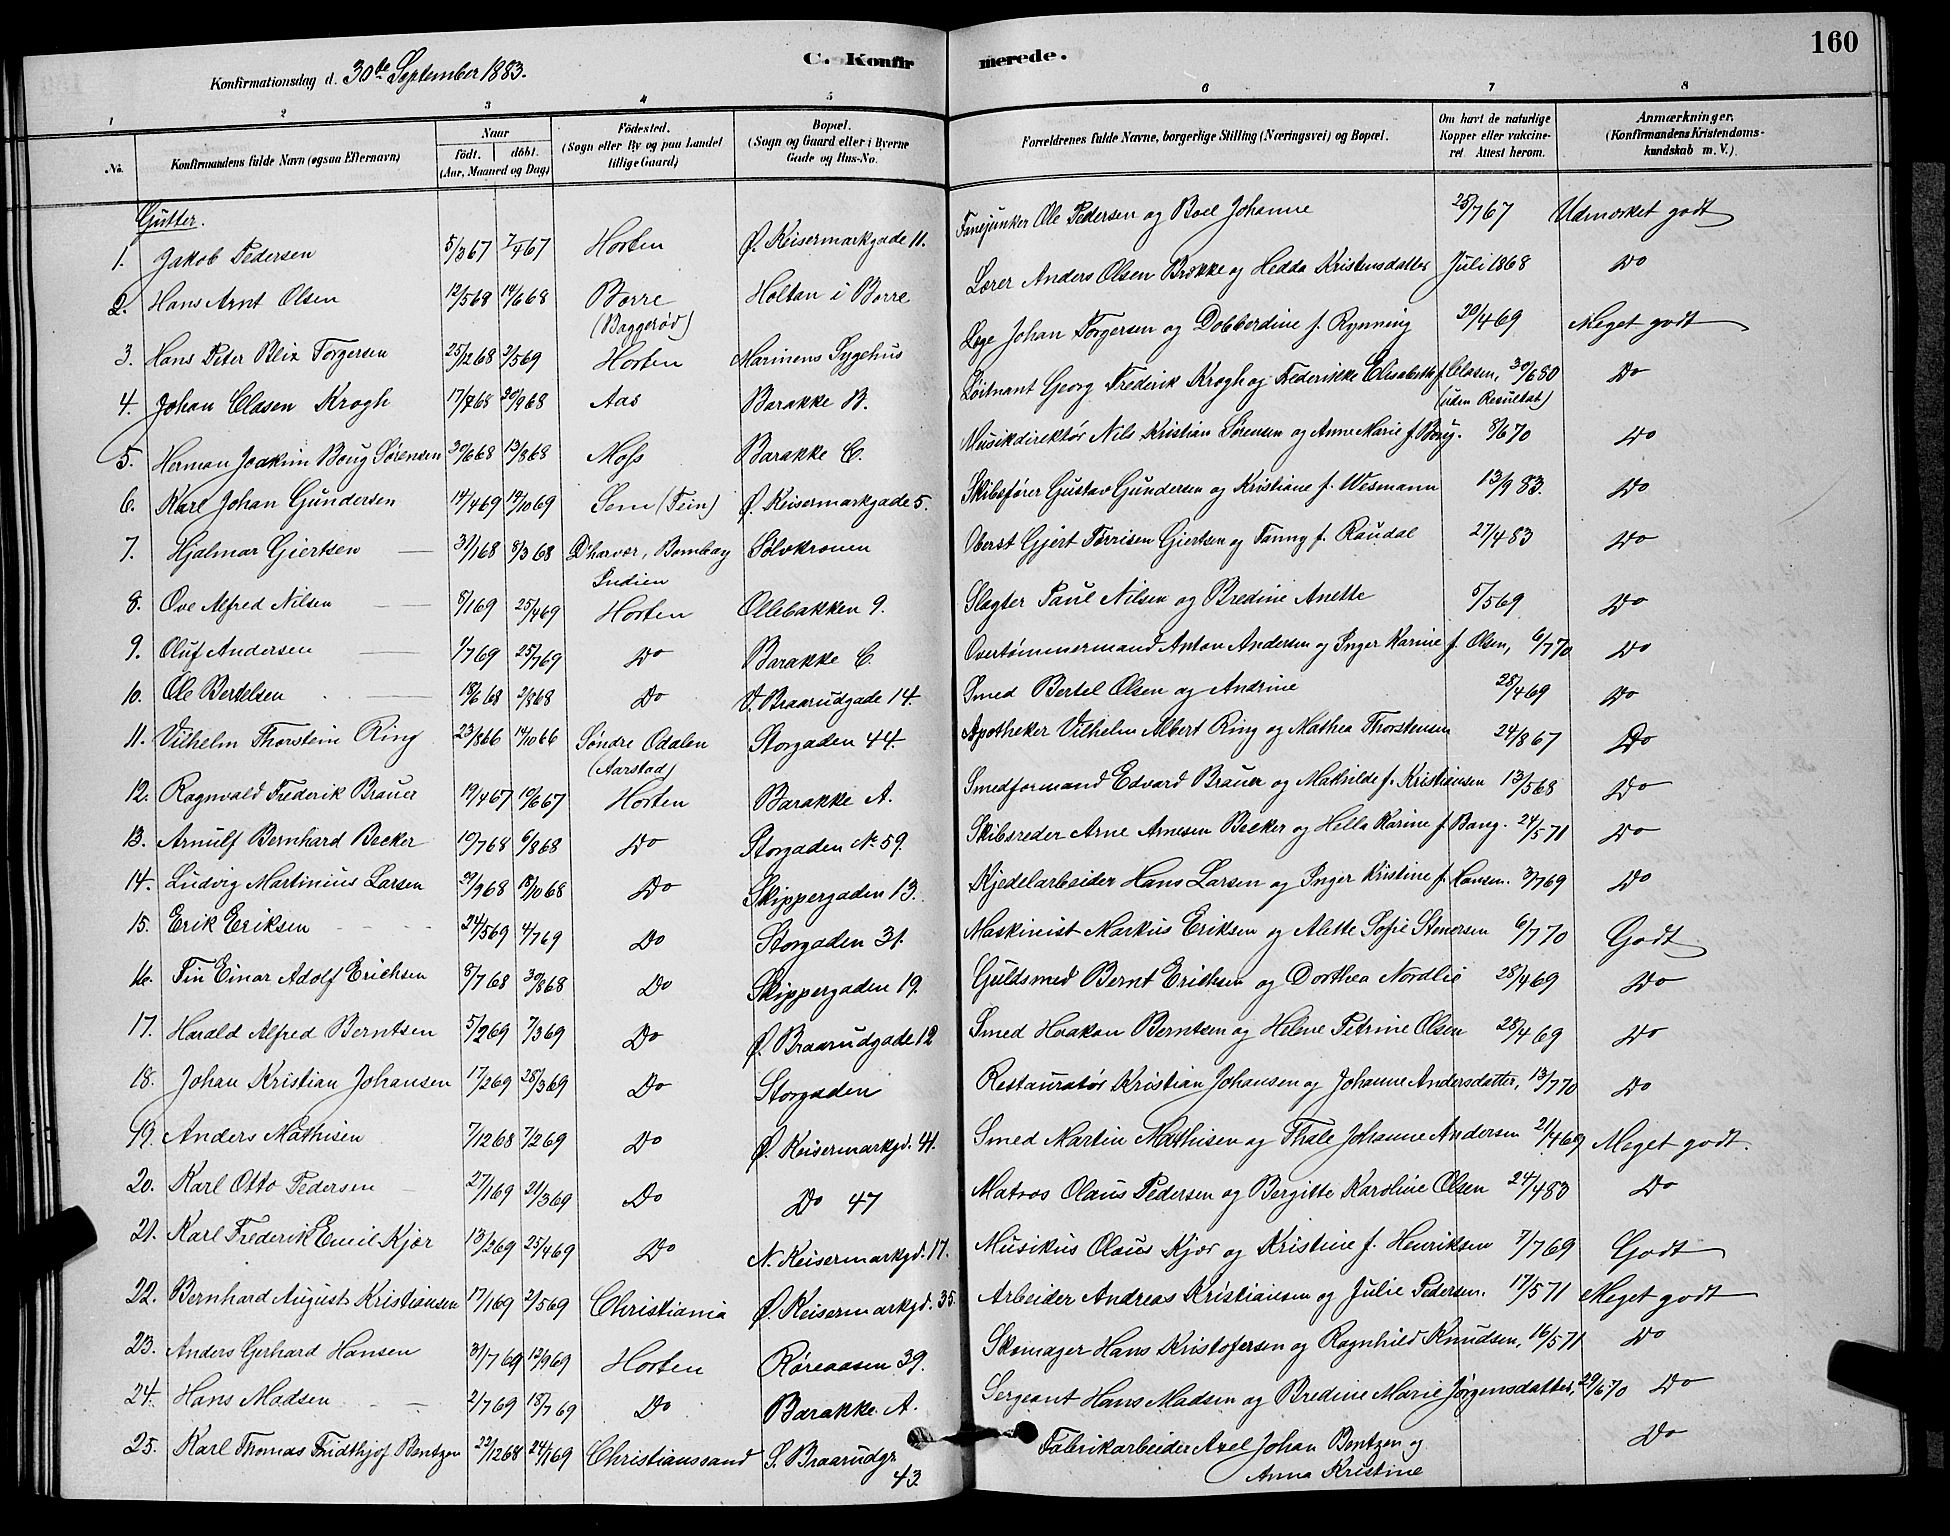 160
Konfirmationsdag d. 30te September 1883.
C. Konfirmerede.
1 2 3 4 5 6 7 8
No.
Konfirmandens fulde Navn (ogsaa Efternavn)
Naar
født. døbt.
(Aar, Maaned og Dag)
Fødested.
(Sogn eller By og paa Landet
tillige Gaard)
Bopæl.
(Sogn og Gaard eller i Byerne
Gade og Hus-No.
Forældrenes fulde Navne, borgerlige Stilling (Næringsvei) og Bopæl.
Om havt de naturlige
Kopper eller vakcine-
ret. Attest herom.
Anmærkninger.
(Konfirmandens Kristendoms-
kundskab m. V.)
Gutter.
1. Jakob Pedersen 5/3 67 7/4 67 Horten Ø. Keisermarkgade 11. Fanejunker Ole Pedersen og Boel Johanne 25/7 67 Udmærket godt
2. Hans Arnt Olsen 12/5 68 14/6 68 Borre Holtan i Borre Lærer Anders Olsen Brække og Hedda Kristensdatter Juli 1868 Do
(Baggerød)
3. Hans Peter Blix Torgersen 25/12 68 2/5 69 Horten Marinens Sygehus Læge Johan Torgersen og Dobberdine f. Rynning 30/4 69 Meget godt
4. Johan Clasen Krogh 17/7 68 20/9 68 Aas Barakke B. Løitnant Georg Frederik Krogh og Frederikke Elisabeth f. Clasen, 30/6 80 Do
(uden Resultat)
5. Herman Joakim Boug Sørensen 30/6 68 13/8 68 Moss Barakke C. Musikdirektør Nils Kristian Sørensen og Anne Marie f. Boug. 8/6 70 Do
6. Karl Johan Gundersen 14/4 69 14/10 69 Sem (Tein) Ø. Keisermarkgade 5. Skibsfører Gustav Gundersen og Kristiane f. Wesmann 13/9 83. Do
7. Hjalmar Giertsen 31/1 68 8/3 68 Dharvar, Bombay Sølvkronen Oberst Gjert Torrisen Giertsen og Fanny f. Raudal 27/4 83 Do
Indien
8. Ove Alfred Nilsen 8/1 69 25/4 69 Horten Ollebakken 9. Slagter Paul Nilsen og Bredine Anette 5/5 69 Do
9. Oluf Andersen 1/7 69 25/7 69 Do Barakke C. Overtømmermand Anton Andersen og Inger Karine f. Olsen, 6/7 70 Do
10. Ole Bertelsen 18/6 68 2/8 68 Do V. Braarudgade 14. Smed Bertel Olsen og Andrine 28/4 69 Do
11. Vilhelm Thorstein Ring 23/8 66 14/10 66 Søndre Odalen Storgaden 44. Apotheker Vilhelm Albert Ring og Mathea Thorstensen 24/8 67 Do
(Aarstad)
12. Ragnvald Frederik Brauer 19/4 67 10/6 67 Horten Barakke A. Smedformand Edvard Brauer og Mathilde f. Kristiansen 13/5 68 Do
13. Arnulf Bernhard Becker 10/7 68 6/8 68 Do Storgaden No 59. Skibsreder Arne Arnesen Becker og Hella Karine f. Bang. 24/5 71 Do
14. Ludvig Martinius Larsen 20/9 68 18/10 68 Do Skippergaden 13. Kjedelarbeider Hans Larsen og Inger Kristine f. Hansen. 3/7 69 Do
15. Erik Eriksen 24/5 69 4/7 69 Do Storgaden 31. Maskinist Markus Eriksen og Alette Sofie Stenersen 6/7 70 Godt
16. Fin Einar Adolf Erichsen 8/7 68 30/8 68 Do Skippergaden 19. Guldsmed Bernt Erichsen og Dorthea Nordlie 28/4 69 Do
17. Harald Alfred Berntsen 5/2 69 7/3 69 Do Ø. Braarudgade 12 Smed Haakon Berntsen og Helene Petrine Olsen 28/4 69 Do
18. Johan Kristian Johansen 17/2 69 28/3 69 Do Storgaden Restauratør Kristian Johansen og Johanne Andersdatter, 13/7 70 Do
19. Anders Mathisen 7/12 68 7/2 69 Do Ø. Keisermarkgd. 41. Smed Martin Mathisen og Thale Johanne Andersen 21/4 69 Meget godt.
20. Karl Otto Pedersen 27/1 69 21/3 69 Do Do 47 Matros Olaus Pedersen og Bergitte Karoline Olsen 24/4 83 Do
21. Karl Frederik Emil Kjær 13/2 69 25/4 69 Do N. Keisermarkgd. 17. Musikus Olaus Kjær og Kristine f. Henriksen 7/7 69 Godt
22. Bernhard August Kristiansen 17/1 69 2/5 69 Christiania Ø. Keisermarkgd. 35. Arbeider Andreas Kristiansen og Julie Pedersen. 17/5 71 Meget godt
23. Anders Gerhard Hansen 3/7 69 12/9 69 Horten Røreaasen 39. Skomager Hans Kristofersen og Ragnhild Knudsen, 16/5 71 Do
24. Hans Madsen 2/7 69 18/7 69 Do Barakke A. Sergeant Hans Madsen og Bredine Marie Jørgensdatter, 29/6 70 Do
25. Karl Thomas Fridthjof Bentzen 22/12 68 24/1 69 Christianssand S. Braarudgr. Fabrikarbeider Axel Johan Bentzen og Do
43. Anna Kristine